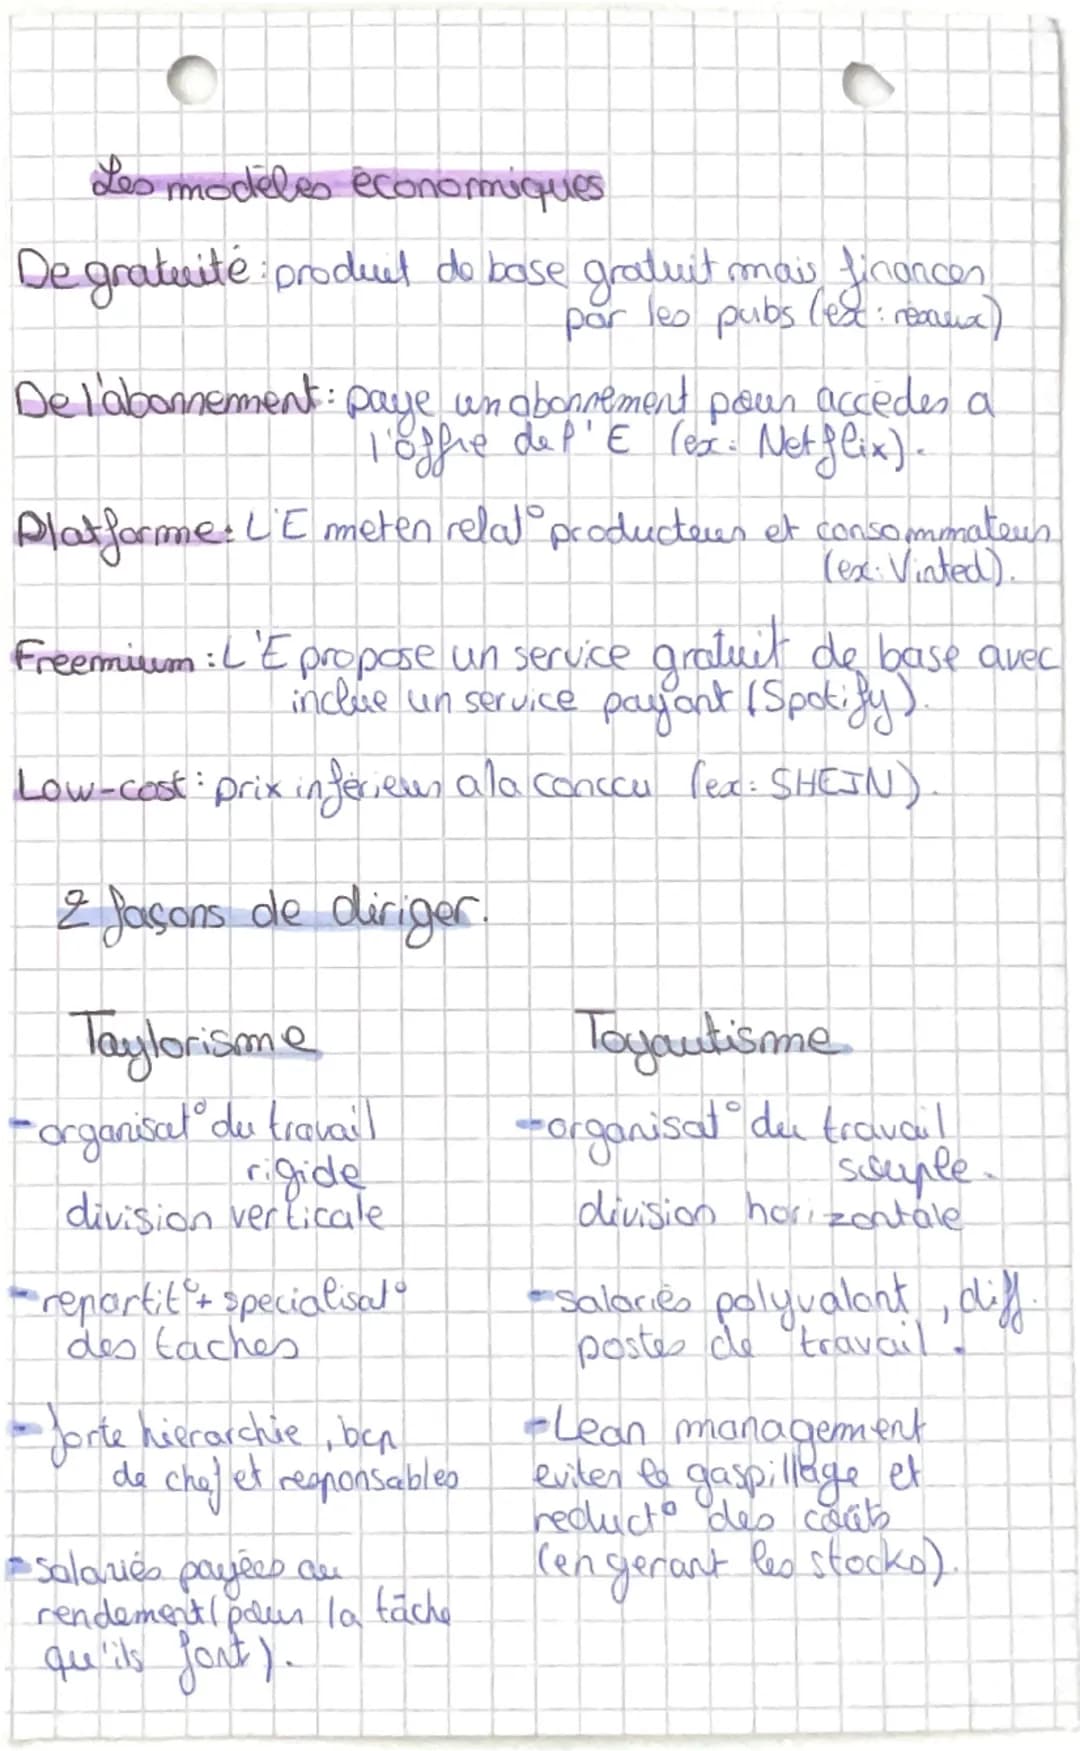 Les modèles économiques
De gratuité : produit de base gratuit mais financer
par les pubs (ex : réseaux)
De l'abonnement : paye un abonnement pour acceder a
l'offre de l'E (ex : Netflix).
Platforme : L'E met en relat° producteur et consommateur
(ex : Vinted).
Freemium : L'E propose un service gratuit de base avec
inclue un service payant (Spotify).
Low-cost : prix inférieur a la conccu (ex : SHEIN).
2 façons de diriger.
Taylorisme
- organisat° du travail
rigide
division verticale
- repartit° + specialisat°
des taches
- forte hierarchie, bcp
de chef et responsables
- salariés payées au
rendement (pour la tâche
qu'ils font).
Toyautisme
- organisat° du travail
souple.
division horizontale
- salariés polyvalant, diff.
postes de travail.
- Lean management
eviter le gaspillage et
reduct° des coûts
(en gerant les stocks).